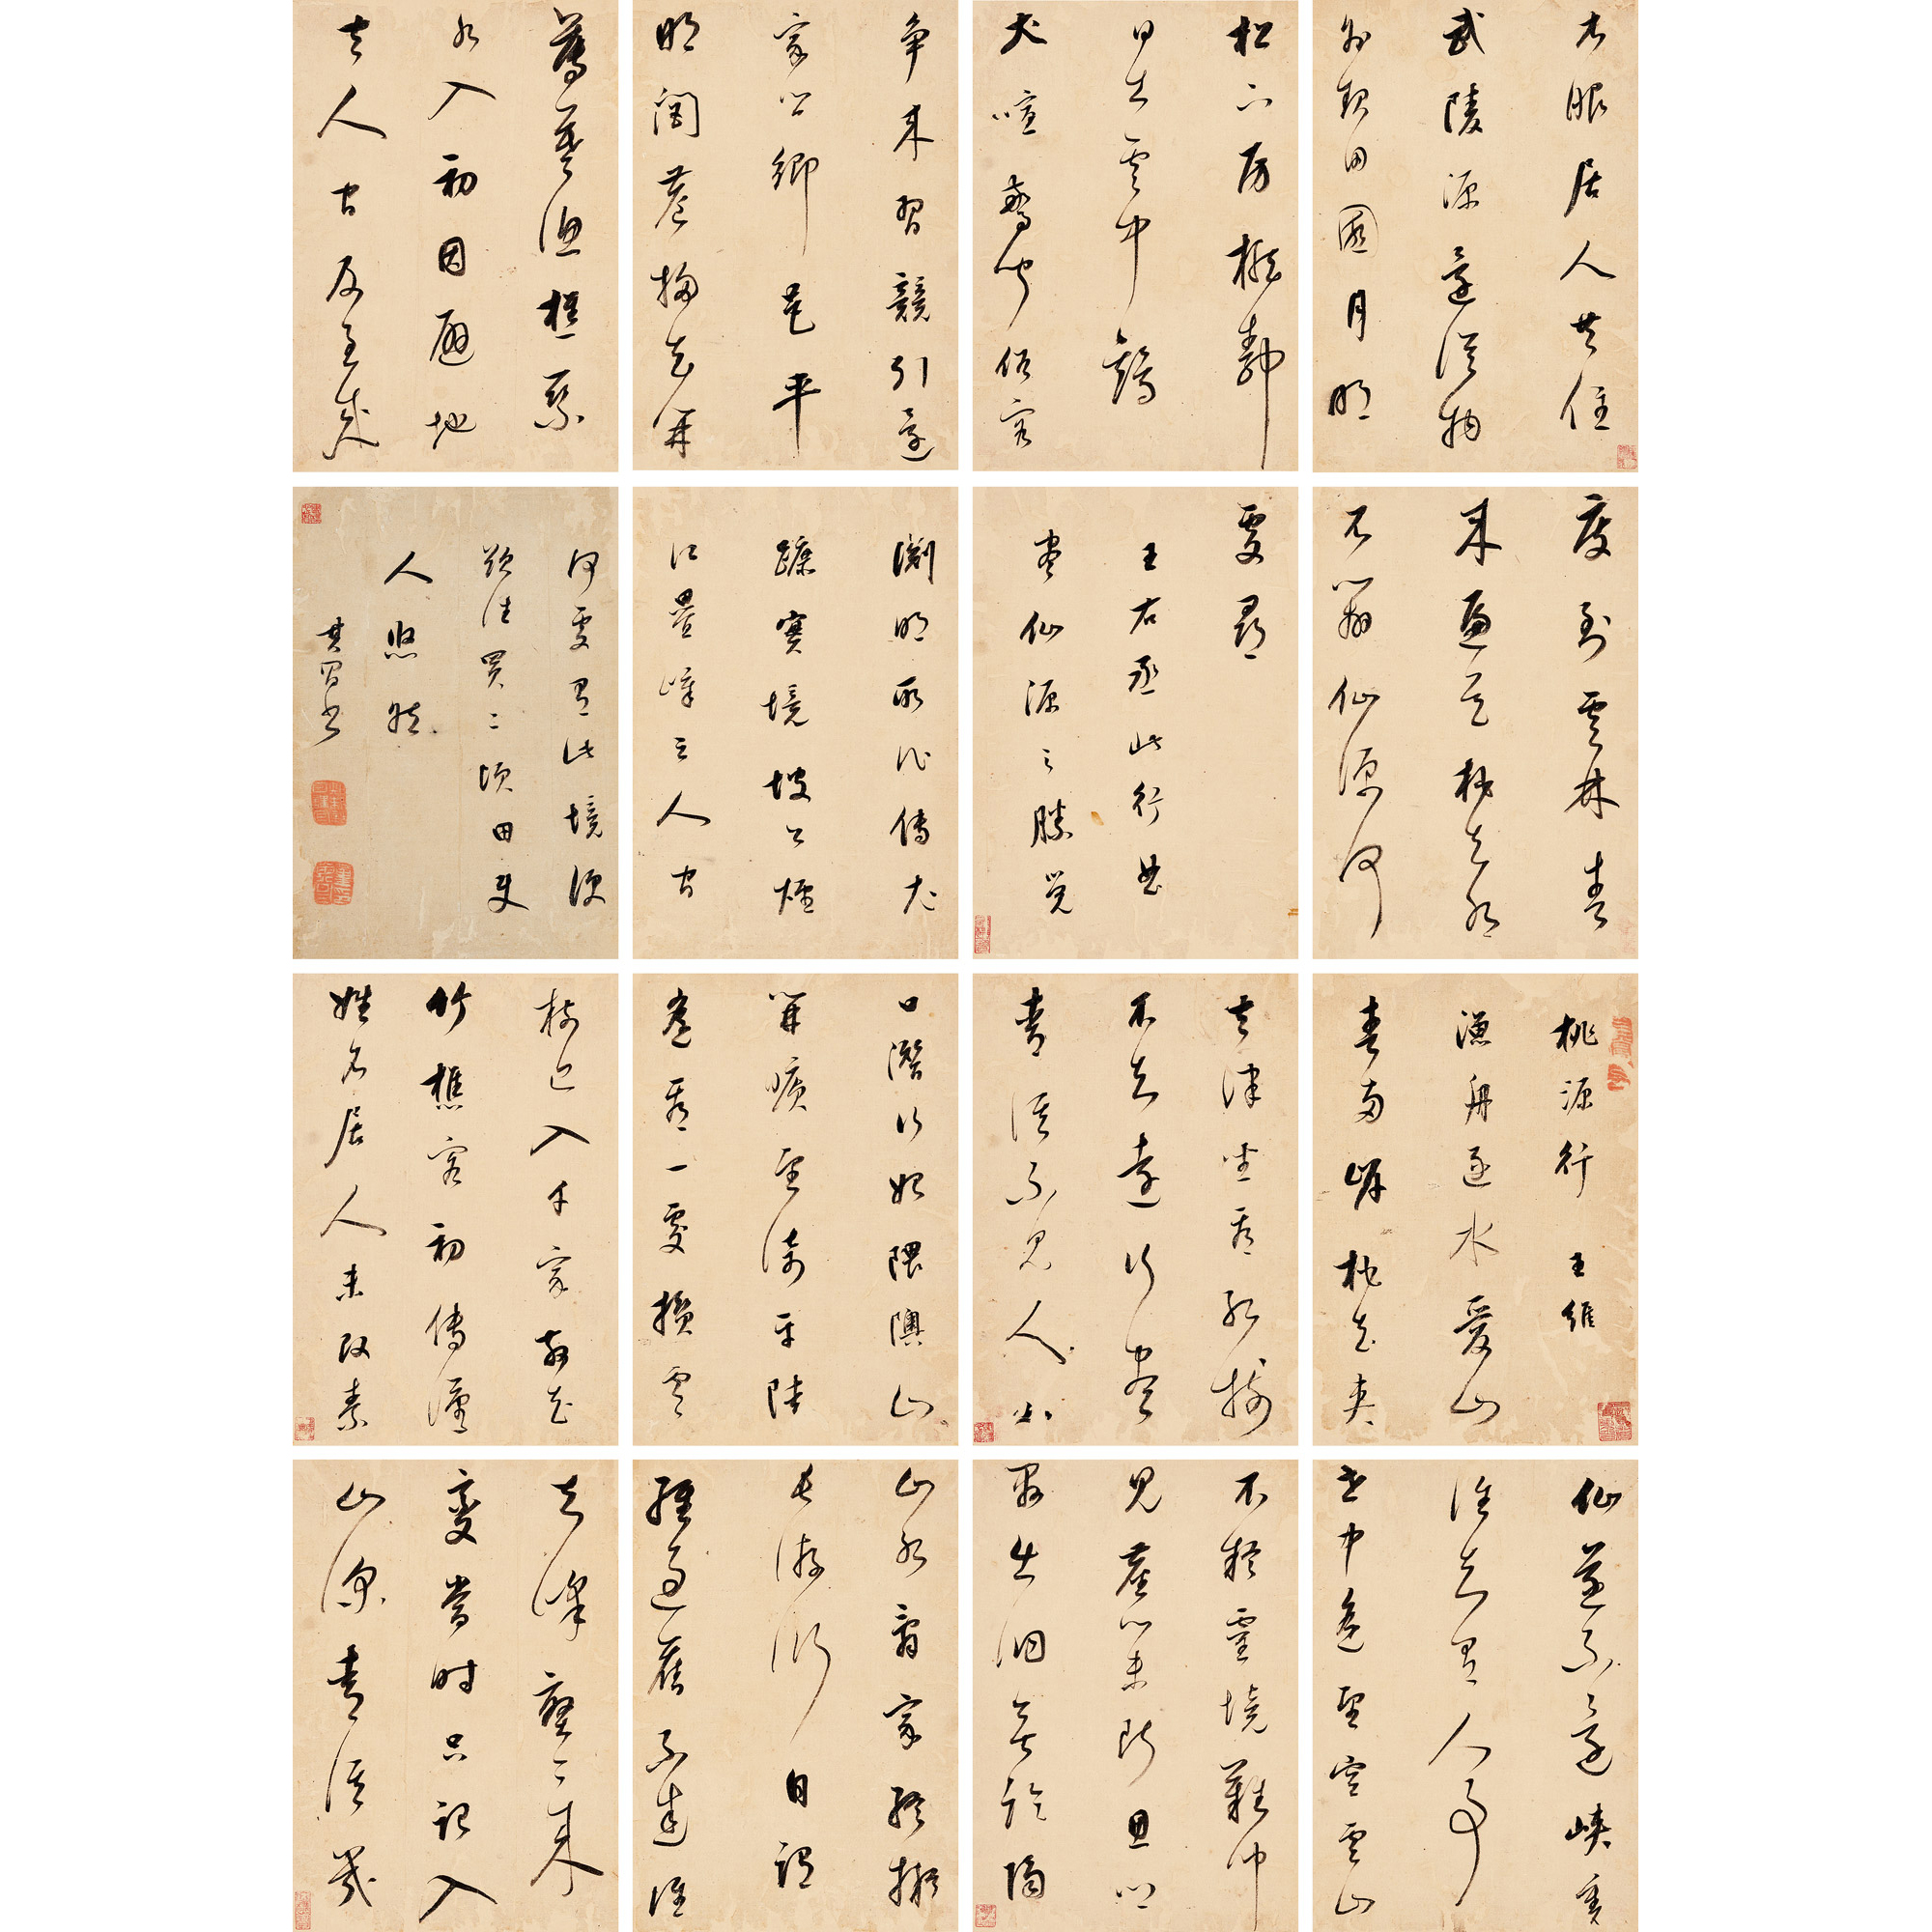 桃源行 王維
漁舟逐水愛山
春兩岸桃花夾
去津坐看紅樹
不知遠行盡
青溪不見人山
口潛行始隈隩山
開曠望旋平陸
遙看一處攢雲
樹近入千家散花
竹樵客初傳漢
姓名居人未改秦
衣服居人共住
武陵源還從物
外起田園月明
松下房櫳靜
日出雲中雞
犬喧驚聞俗客
爭來集競引還
家問都邑平
明閭巷掃花開
薄暮漁樵乘
水入初因避地
去人間及至成
仙遂不還峽裏
誰知有人事
世中遙望空雲山
不疑靈境難聞
見塵心未斷思鄉
縣出洞無論隔
山水辭家終擬
長游衍自謂
經過舊不迷誰
知峰壑今來
變當時只記入
山深青溪幾
度到雲林春
來遍是桃花水
不辨仙源何
處尋
王右丞此行曲
盡仙源之勝覺
淵明所作傳尤
實境坡公煙
江疊嶂云人間
何處有此境便
欲往買二頃田使
人悠然
其昌書